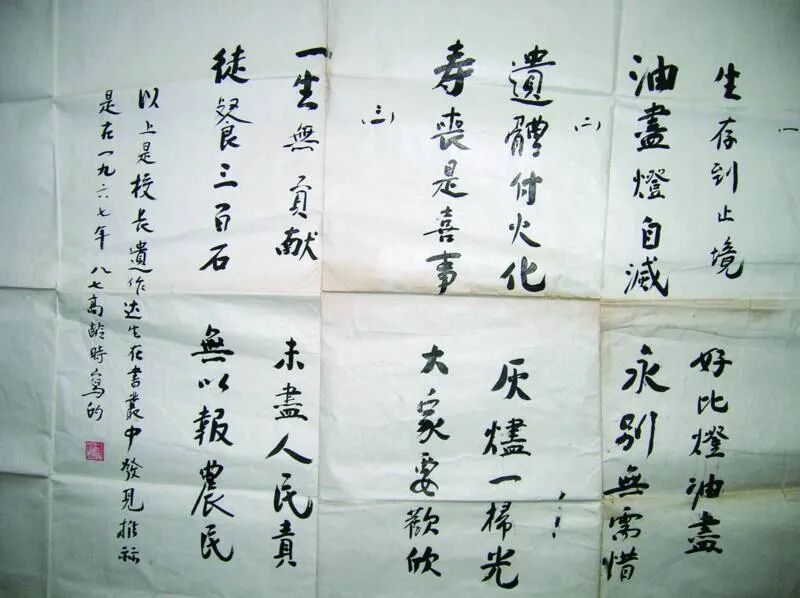 一
生存到止境 好比燈油盡
油盡燈自滅 永別無需惜
(二)
遺體付火化 灰燼一掃光
寿喪是喜事 大家要歡欣
(三)
一生無貢献 未盡人民責
徒餐三百石 無以報農民
以上是校長遺作达生在書叢中發見
是在一九六七年八七高齡時寫的